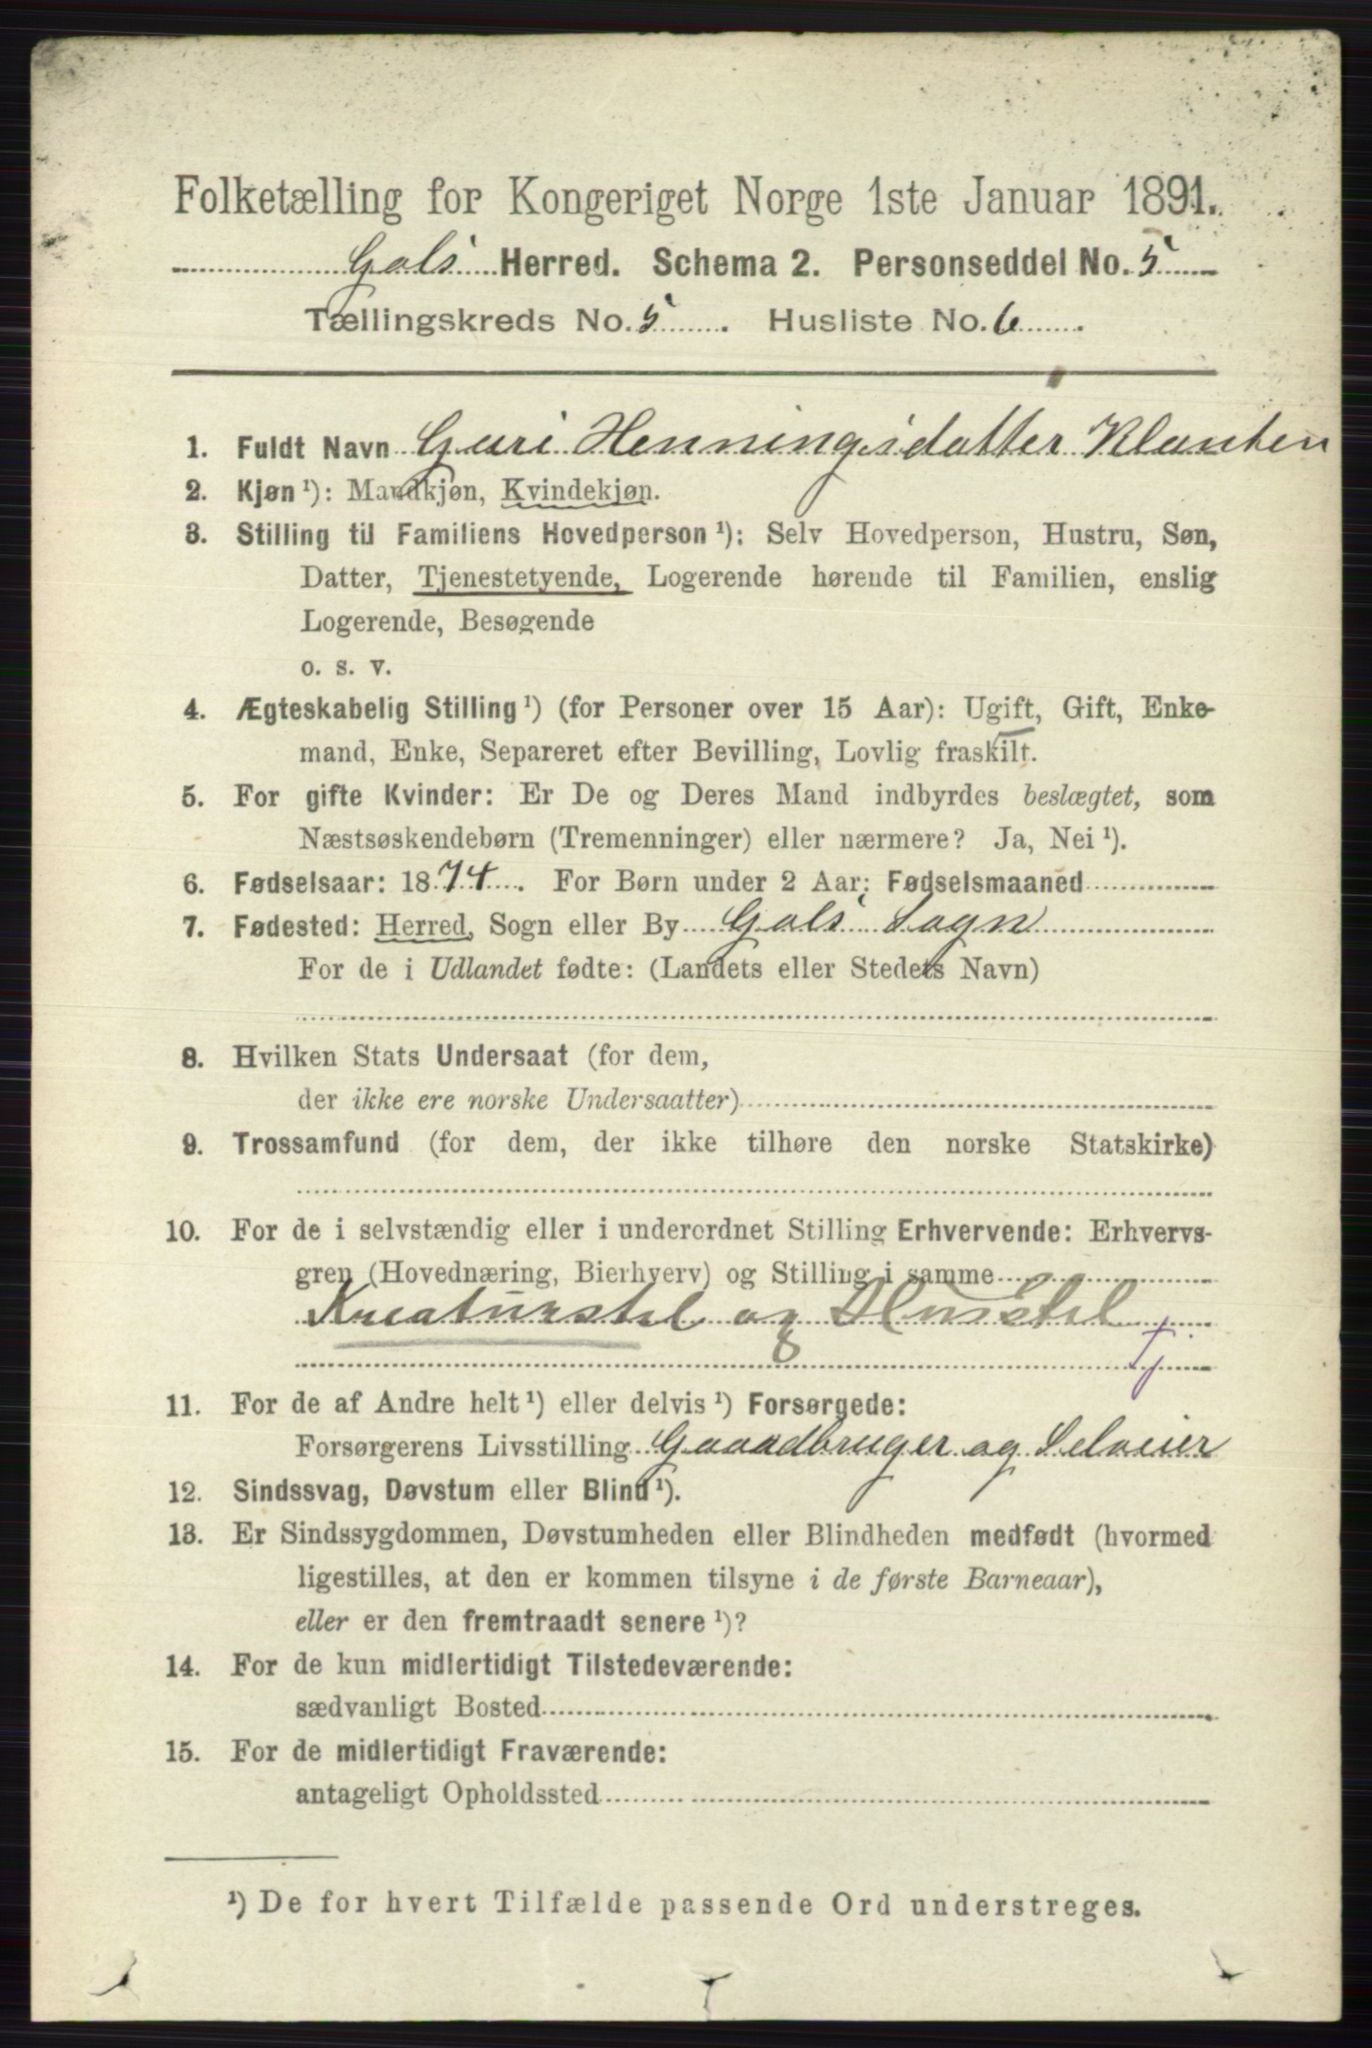 Folketælling for Kongeriget Norge 1ste Januar 1891.
Gols Herred. Schema 2. Personseddel No. 5
Tællingskreds No. 5. Husliste No. 6.
1. Fuldt Navn Guri Henningsdatter Klanten
2. Kjøn ¹): Mandkjøn, Kvindekjøn.
3. Stilling til Familiens Hovedperson ¹): Selv Hovedperson, Hustru, Søn,
Datter, Tjenestetyende, Logerende hørende til Familien, enslig
Logerende, Besøgende
o. s. v.
4. Ægteskabelig Stilling ¹) (for Personer over 15 Aar): Ugift, Gift, Enke-
mand, Enke, Separeret efter Bevilling, Lovlig fraskilt.
5. For gifte Kvinder: Er De og Deres Mand indbyrdes beslægtet, som
Næstsøskendebørn (Tremenninger) eller nærmere? Ja, Nei ¹).
6. Fødselsaar: 1874. For Børn under 2 Aar: Fødselsmaaned
7. Fødested: Herred, Sogn eller By Gols Sogn
For de i Udlandet fødte: (Landets eller Stedets Navn)
8. Hvilken Stats Undersaat (for dem,
der ikke ere norske Undersaatter)
9. Trossamfund (for dem, der ikke tilhøre den norske Statskirke)
10. For de i selvstændig eller i underordnet Stilling Erhvervende: Erhvervs-
gren (Hovednæring, Bierhverv) og Stilling i samme
Kreaturstel og Husstel
tj.
11. For de af Andre helt ¹) eller delvis ¹) Forsørgede:
Forsørgerens Livsstilling Gaardbruger og Selveier
12. Sindssvag, Døvstum eller Blind ¹).
13. Er Sindssygdommen, Døvstumheden eller Blindheden medfødt (hvormed
ligestilles, at den er kommen tilsyne i de første Barneaar),
eller er den fremtraadt senere ¹)?
14. For de kun midlertidigt Tilstedeværende:
sædvanligt Bosted
15. For de midlertidigt Fraværende:
antageligt Opholdssted
¹) De for hvert Tilfælde passende Ord understreges.